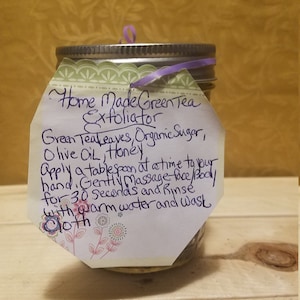 ~Home Made Green Tea
Exfoliator
Green Tea Leaves, Organic Sugar,
Olive Oil, Honey
Apply a tablespoon at a time to your
hand. Gently Massage face/body
for 30 seconds and Rinse
with warm water and wash
cloth